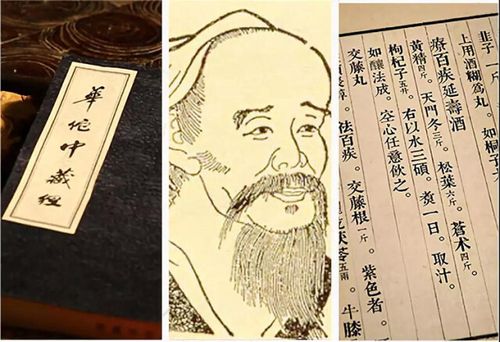 華佗中藏經
韭子一
上用酒糊為丸。如桐子
療百疾延壽酒
黃精四斤。天門冬三斤。松葉六斤。蒼术四斤。
枸杞子五升。右以水三碩。煑一日。取汁。
如釀法成。空心任意飲之。
交藤丸
祛百疾。交藤根一斤。紫色者。
茯苓五兩。牛膝